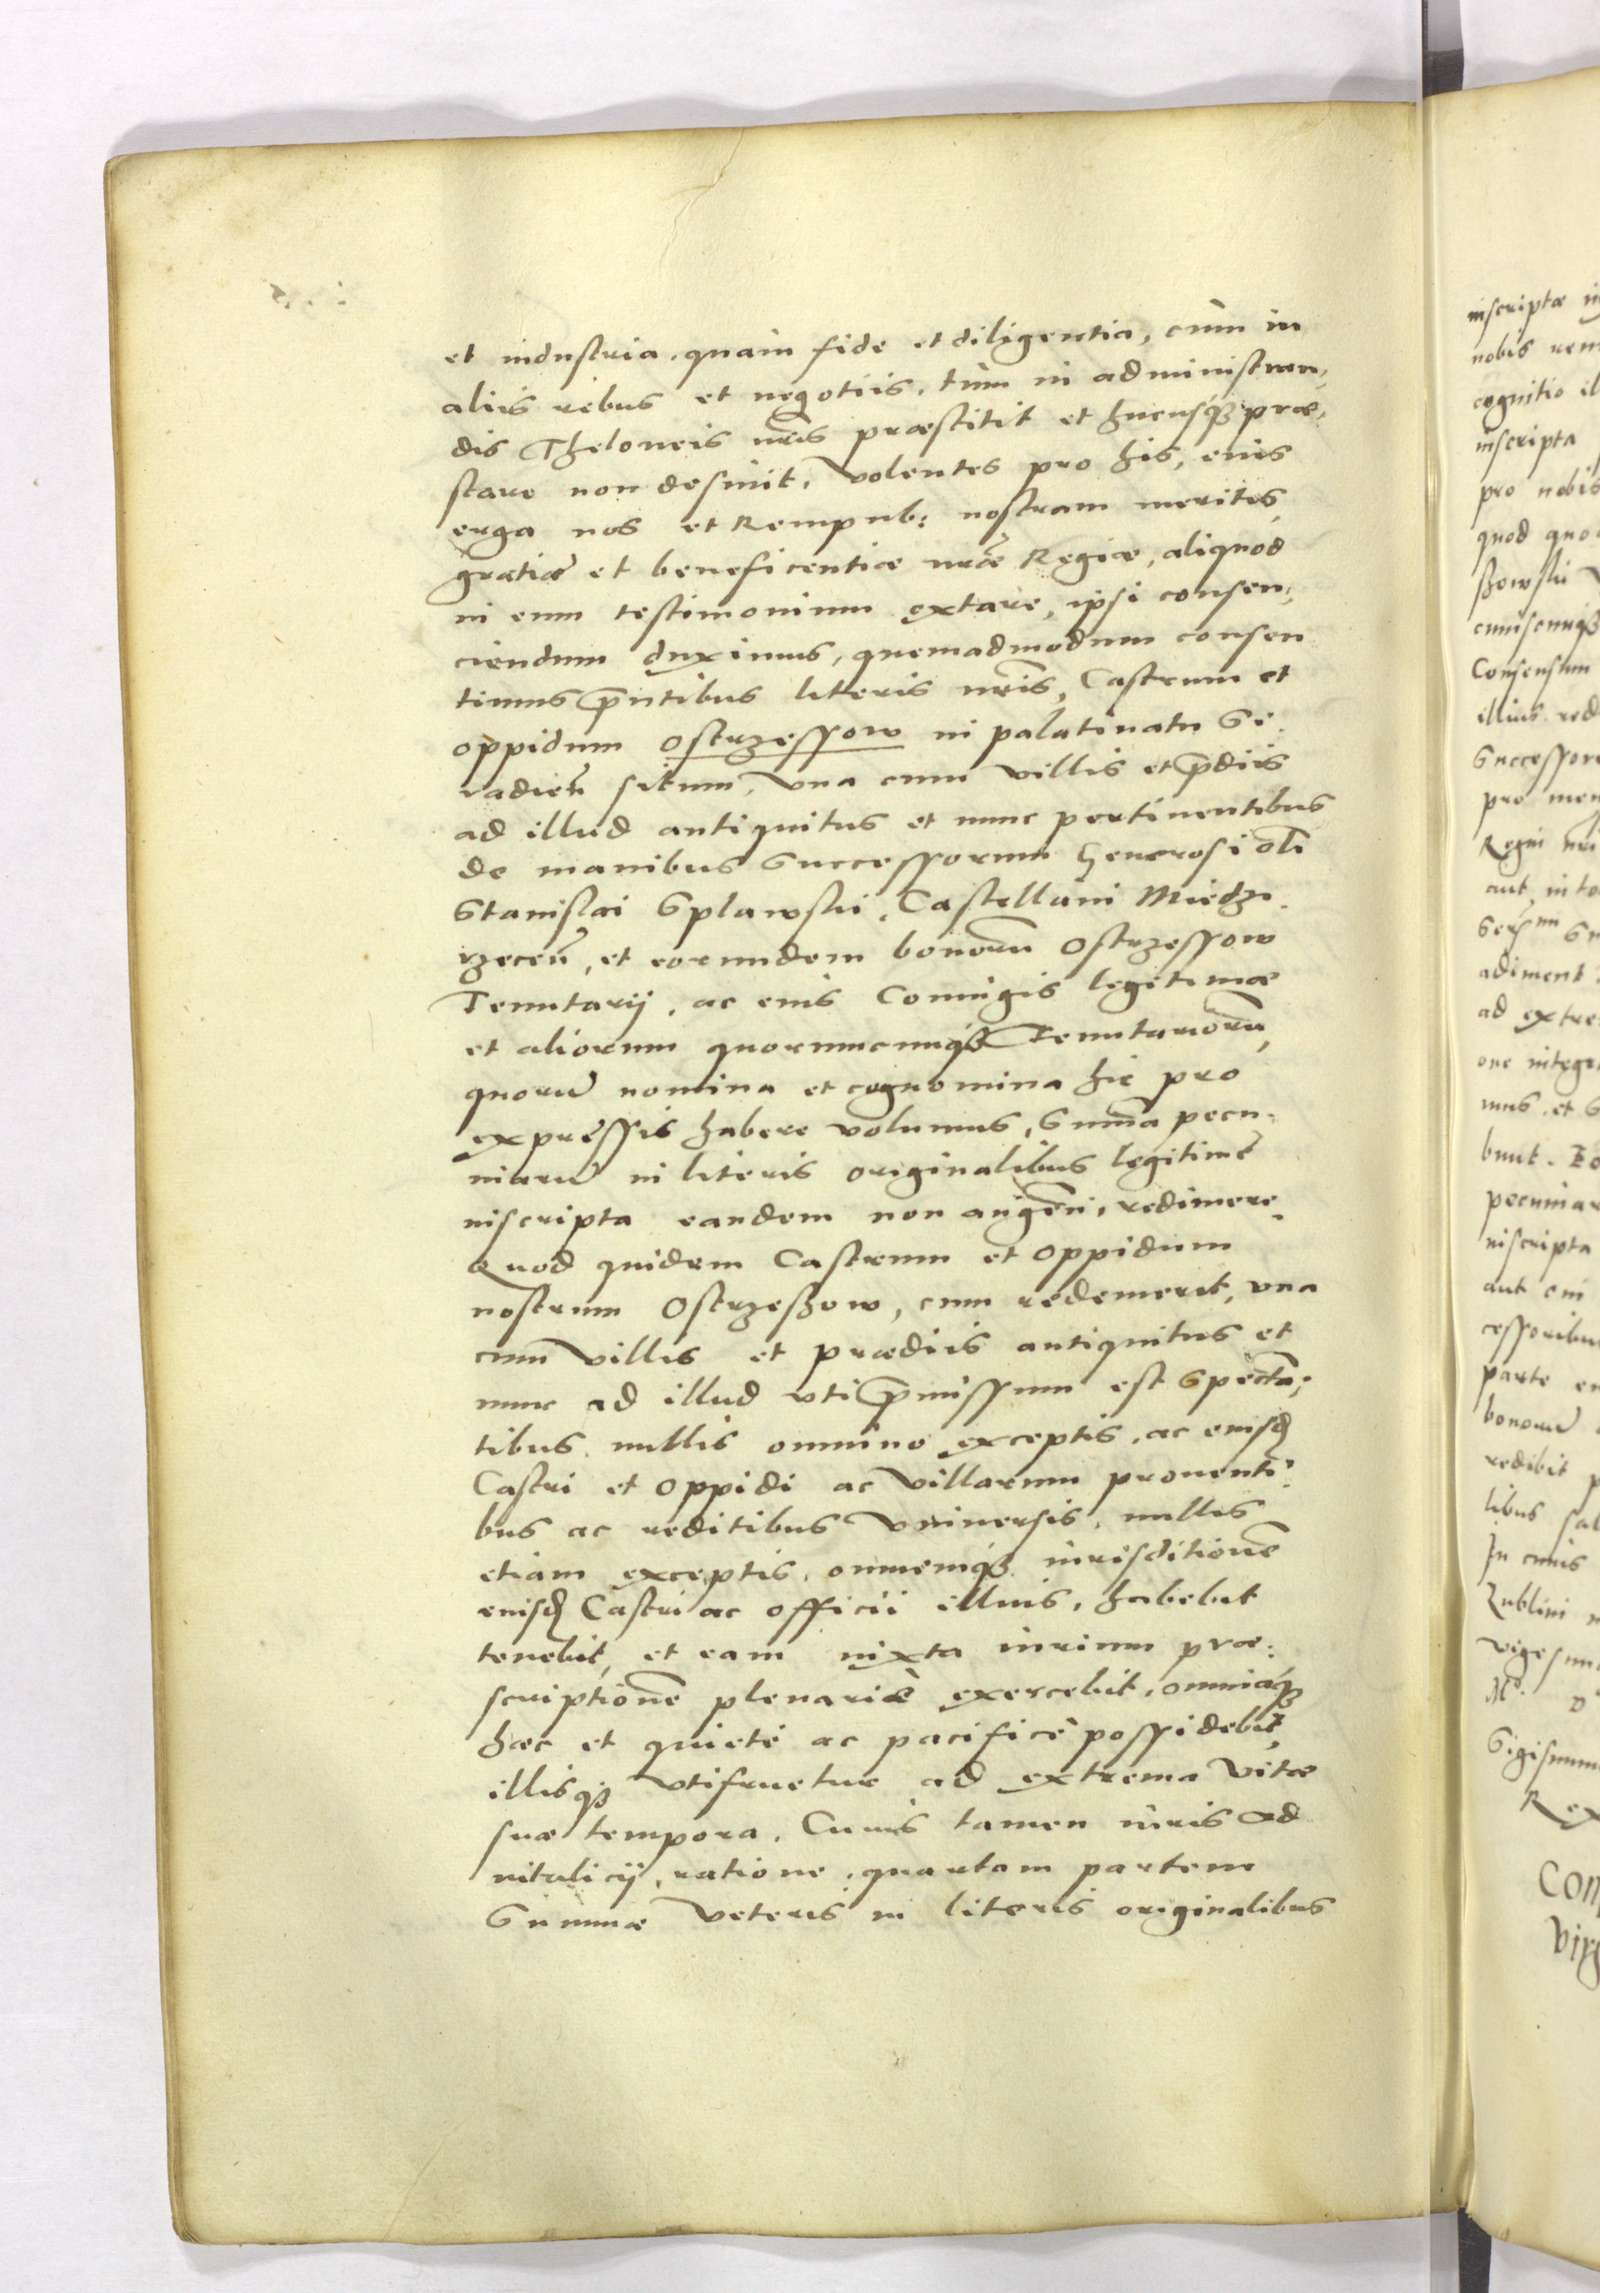 et industria, quam fide et diligentia, cum in
aliis rebus et negotiis, tum in administran,
dis Theloneis nris præstitit et hucusq præ,
stare non desinit, Volentes pro his, eius
erga nos et Rempub: nostram meritis
gratiæ et beneficentiæ nræ Regiæ, aliquod
in eum testimonium extare, ipsi consen,
ciendum duximus, quemadmodum consen
timus pntibus literis nris, Castrum et
oppidum Ostrzessow in palatinatu Si,
radien situm, vna cum villis et prdiis
ad illud antiquitus et nunc pertinentibus
de manibus Successorum Generosi oli
Stanislai Splawski, Castellani Miedzi,
rzecen, et eorundem bonoru Ostrzessow
Tenutarij, ac eius Coniugis legitimæ
et aliorum quorumcunq Tenutarioru,
quoru nomina et cognomina hic pro
expressis habere volumus, Suma pecu,
niaru in literis originalibus legitime
inscripta eandem non augen, redimere.
Quod quidem Castrum et Oppidum
nostrum Ostrzeßow, cum redemerit, vna
cum villis et prædiis antiquitus et
nunc ad illud vti prmissum est Specta,
tibus, nullis omnino exceptis, ac eiusd
Castri et Oppidi ac Villarum prouenti,
bus ac reditibus Vniuersis, nullis
etiam exceptis, omnemq iurisditione
eiusd Castri ac officii illius, habebit
tenebit, et eam iuxta iurium præ,
scriptione plenariè exercebit, omniaq
hæc et quietè ac pacificè possidebit,
illisq vtifruetur ad extrema Vitæ
suæ tempora. Cuius tamen iuris ad
vitalicij, ratione, quartam partem
Summæ Veteris in literis originalibus
inscriptæ
nobis
cognitio
inscripta
pro nobis
quod
cuiuscunq
Consensum
illius
Successor
pro
Regni nri
aut
ad
pecuniar
inscripta
aut
parte
redibit
In cuius
Lublini
Sigismun
Rex